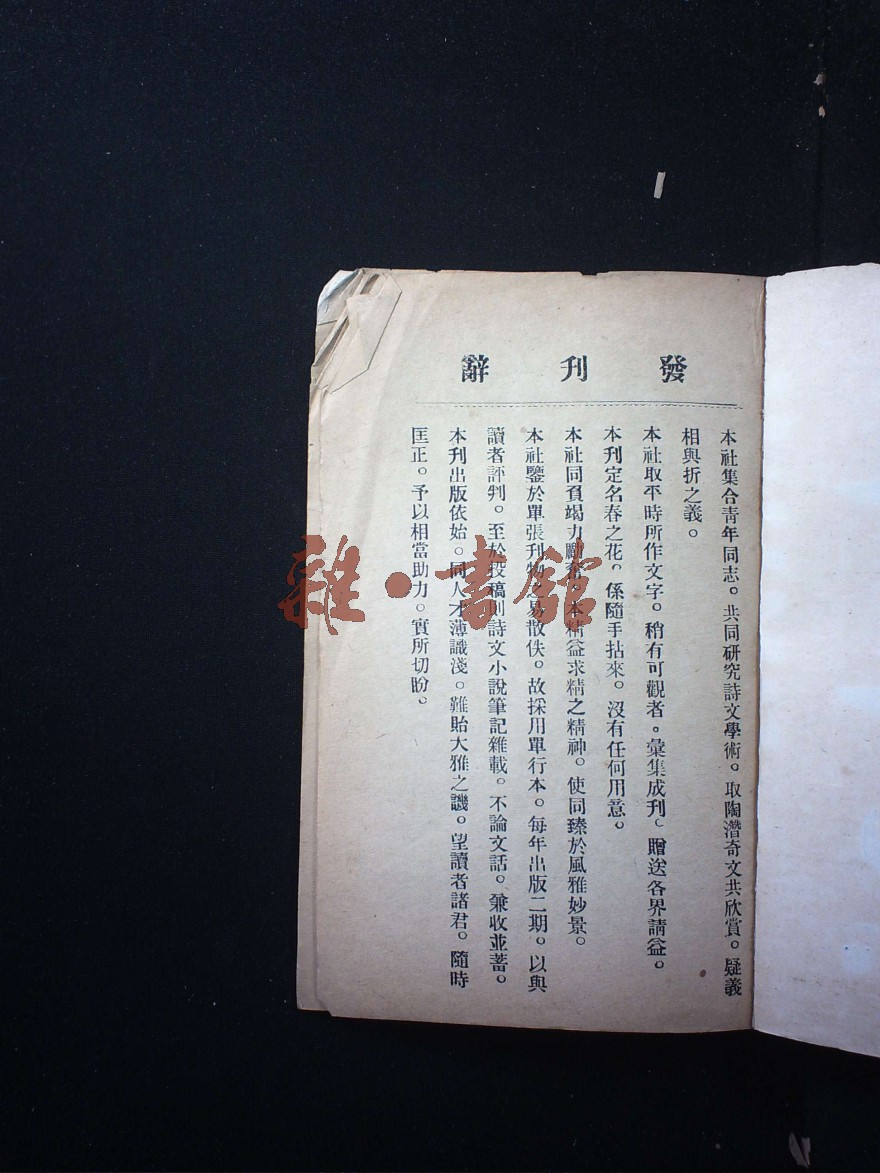 發刊辭
本社集合靑年同志。共同研究詩文學術。取陶潛奇文共欣賞。疑義
相與折之義。
本社取平時所作文字。稍有可觀者。彙集成刋。贈送各界請益。
本刋定名春之花。係隨手拈來。沒有任何用意。
本社同頁竭力勵奮。本精益求精之精神。使同臻於風雅妙景。
本社鑒於單張刋物之易散佚。故採用單行本。每年出版二期。以與
讀者評判。至於投稿則詩文小說筆記雜載。不論文話。兼收並蓄。
本刋出版依始。同人才薄識淺。難貽大雅之譏。望讀者諸君。隨時
匡正。予以相當助力。實所切盼。
雜·書館